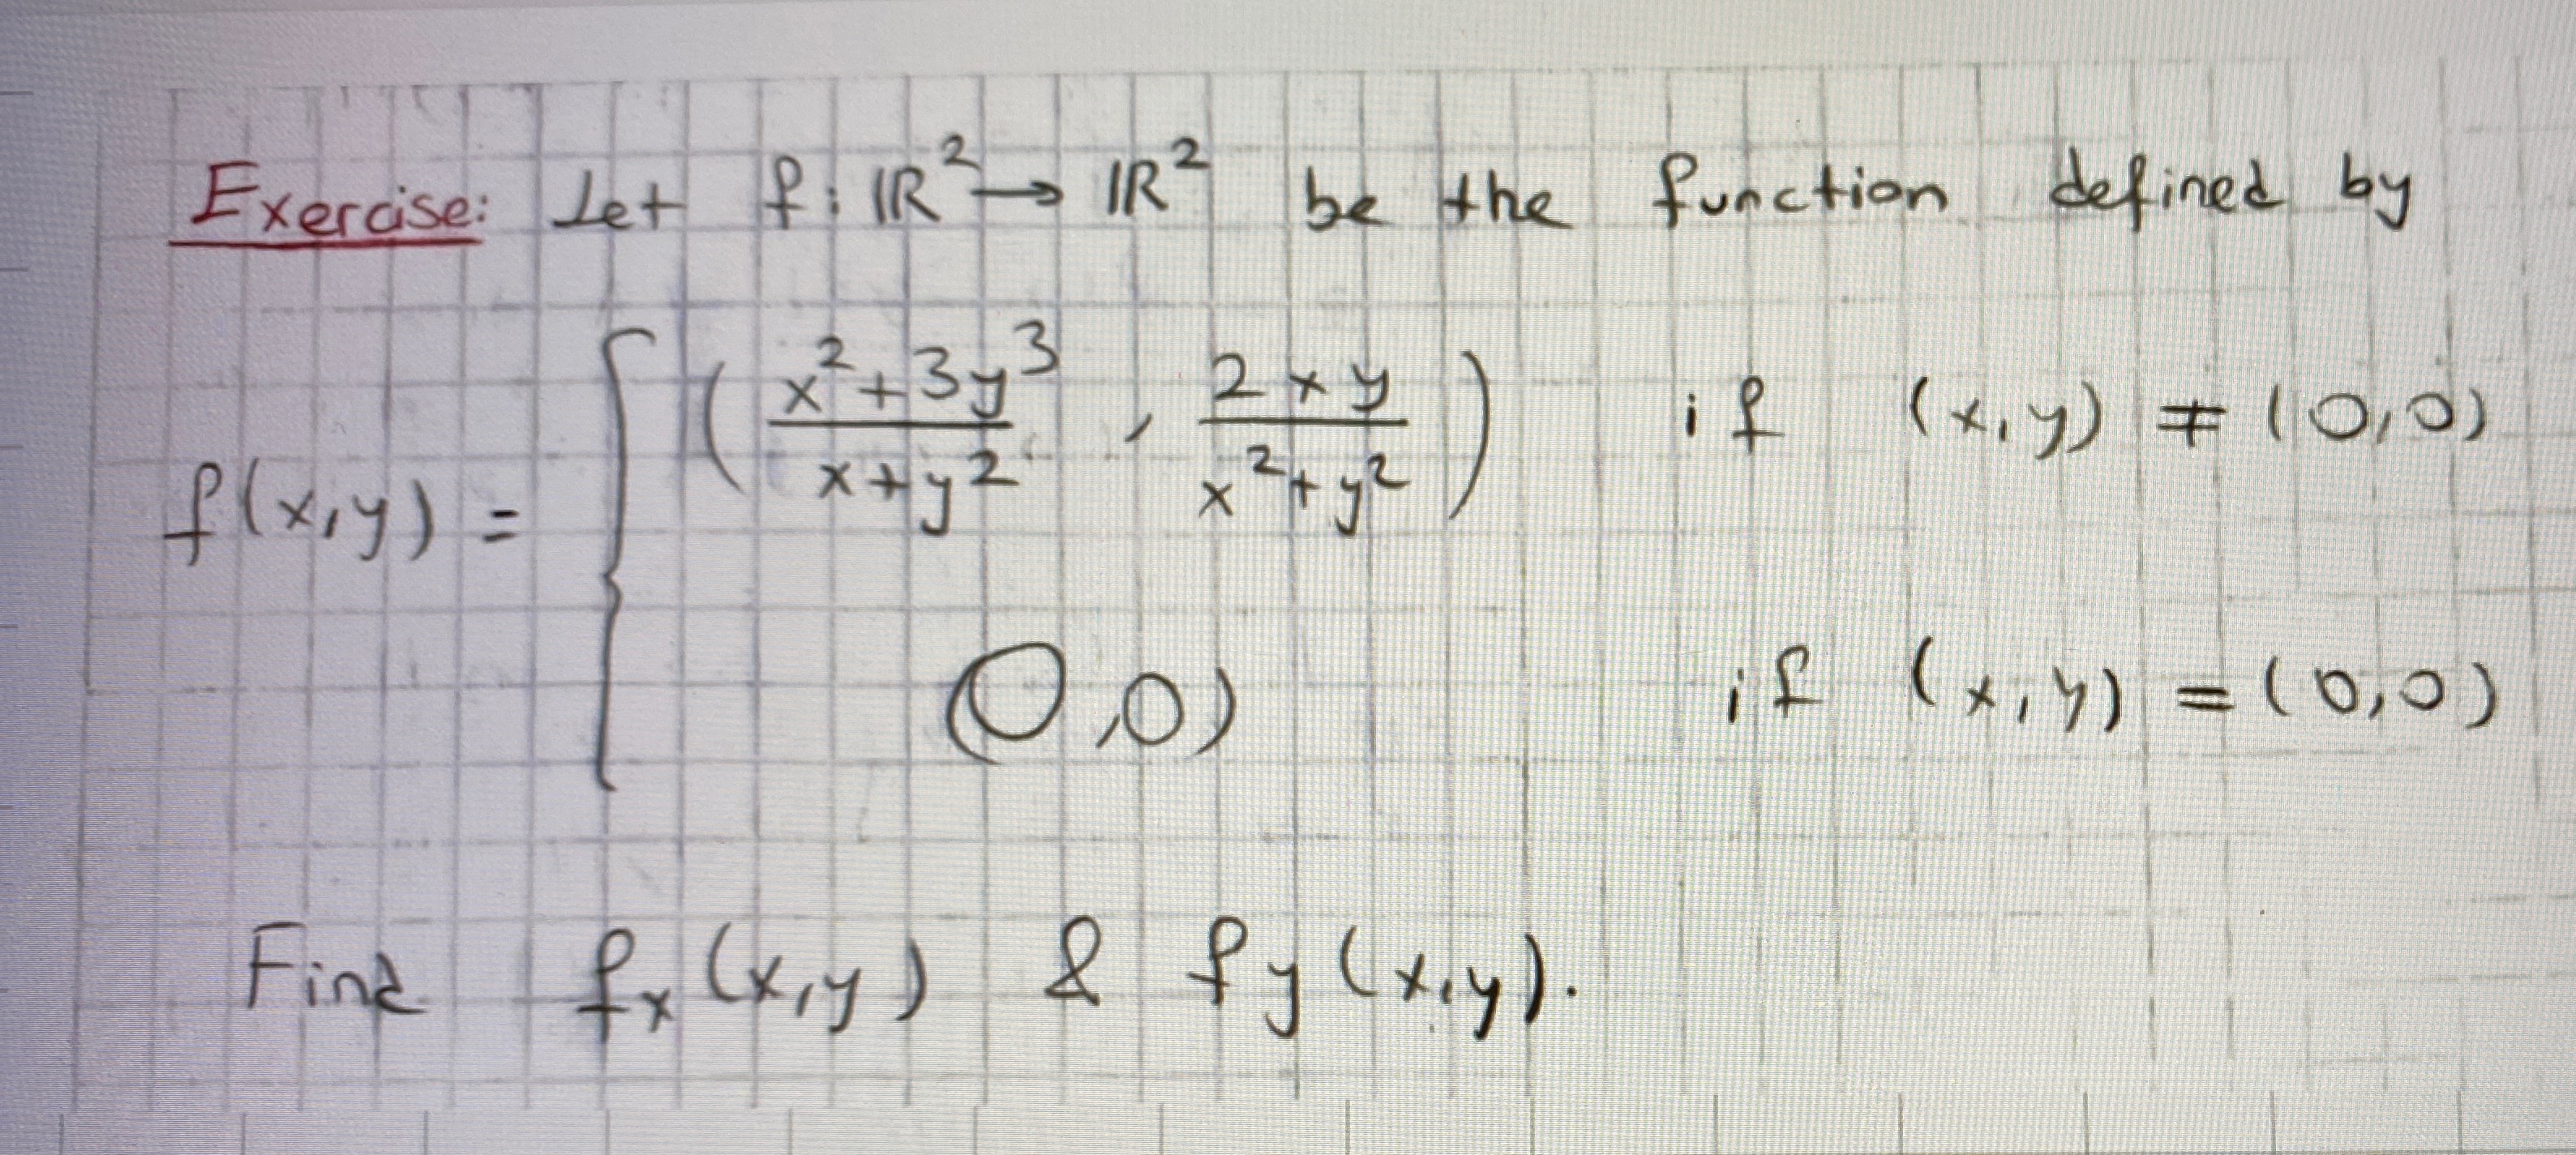 Exercise: Let f: ℝ² → ℝ² be the function defined by
f(x,y) = { ( (x²+3y³)/(x+y²) , (2xy)/(x²+y²) ) if (x,y) ≠ (0,0)
(0,0) if (x,y) = (0,0)
Find fₓ(x,y) & fy(x,y).